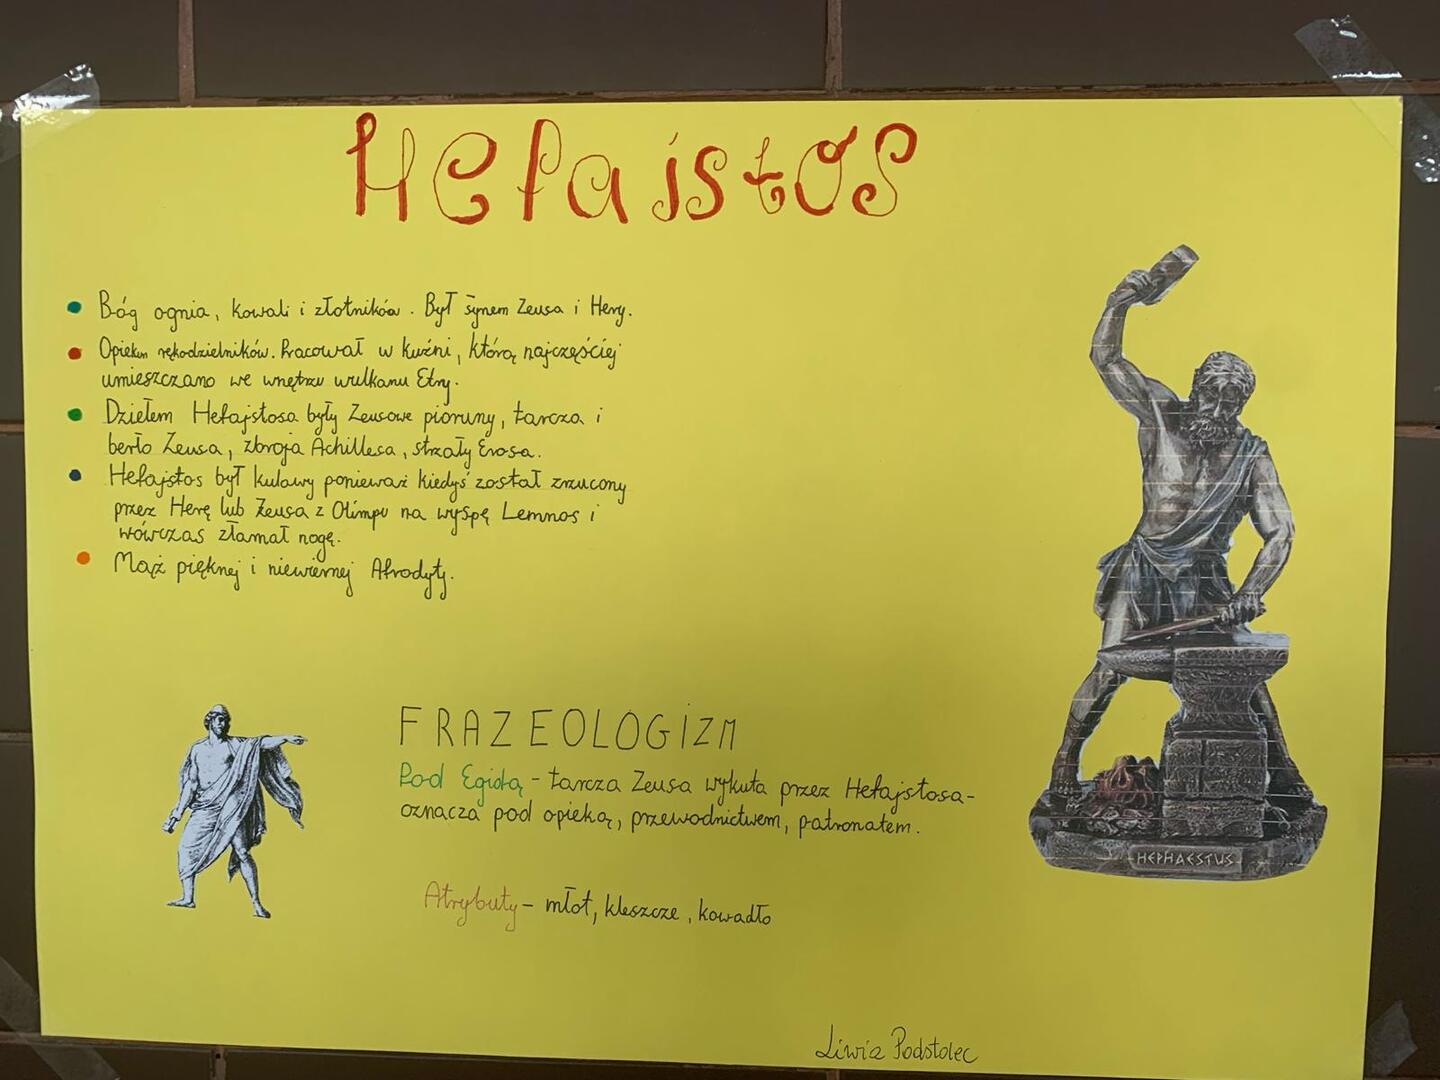 Hefajstos
Bóg ognia, kowali i złotników. Był synem Zeusa i Hery.
Opiekun rękodzielników. Pracował w kuźni, którą najczęściej
umieszczano we wnętrzu wulkanu Etny.
Dziełem Hefajstosa były Zeusowe pioruny, tarcza i
berło Zeusa, zbroja Achillesa, strzały Erosa.
Hefajstos był kulawy ponieważ kiedyś został zrzucony
przez Herę lub Zeusa z Olimpu na wyspę Lemnos i
wówczas złamał nogę.
Mąż pięknej i niewiernej Afrodyty.
FRAZEOLOGIZM
Pod Egidą - tarcza Zeusa wykuta przez Hefajstosa-
oznacza pod opieką, przewodnictwem, patronatem.
HEPHAESTUS
Atrybuty - młot, kleszcze, kowadło
Liwia Podstolec